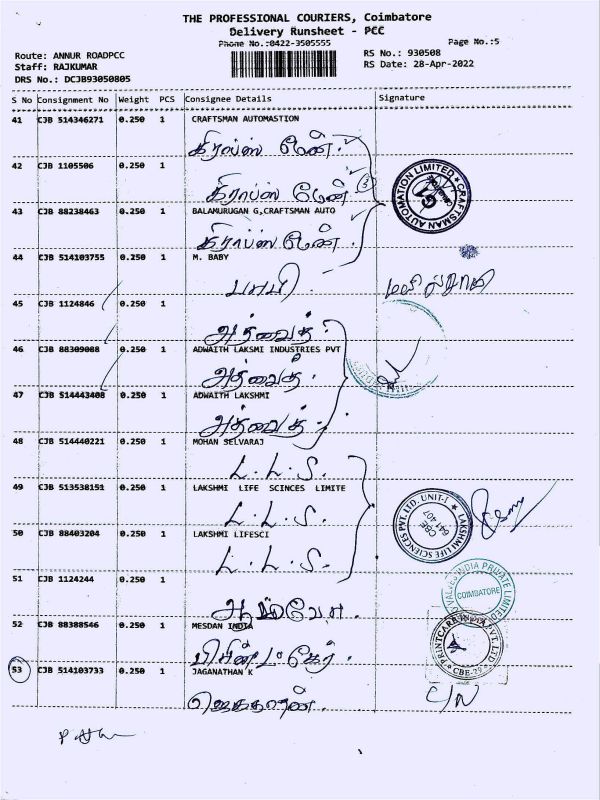 THE PROFESSIONAL COURIERS, Coimbatore
Delivery Runsheet - PCC
Phone No.:0422-3505555
Page No.:5
Route: ANNUR ROADPCC
RS No.: 930508
Staff: RAJKUMAR
RS Date: 28-Apr-2022
DRS No.: DCJB93050805
S No Consignment No Weight PCS Consignee Details Signature
41 CJB 514346271 0.250 1 CRAFTSMAN AUTOMASTION
42 CJB 1105506 0.250 1
43 CJB 88238463 0.250 1 BALAMURUGAN G,CRAFTSMAN AUTO
44 CJB 514103755 0.250 1 M. BABY
பாபி.
45 CJB 1124846 0.250 1
அத்வைத்
46 CJB 88309088 0.250 1 ADWAITH LAKSMI INDUSTRIES PVT
அத்வைத்.
47 CJB 514443408 0.250 1 ADWAITH LAKSHMI
அத்வைத்.
48 CJB 514440221 0.250 1 MOHAN SELVARAJ
L.L.S.
49 CJB 513538151 0.250 1 LAKSHMI LIFE SCINCES LIMITE
L.L.S.
50 CJB 88403204 0.250 1 LAKSHMI LIFESCI
L.L.S.
51 CJB 1124244 0.250 1
52 CJB 88388546 0.250 1 MESDAN INDIA
53 CJB 514103733 0.250 1 JAGANATHAN K
C/N
CRAFTSMAN AUTOMATION LIMITED
LAKSHMI LIFE SCIENCES PVT. LTD. UNIT-I
CBE
641 407
VALVES INDIA PRIVATE LIMITED
COIMBATORE
PRINTCARE INDIA PVT. LTD
CBE-29